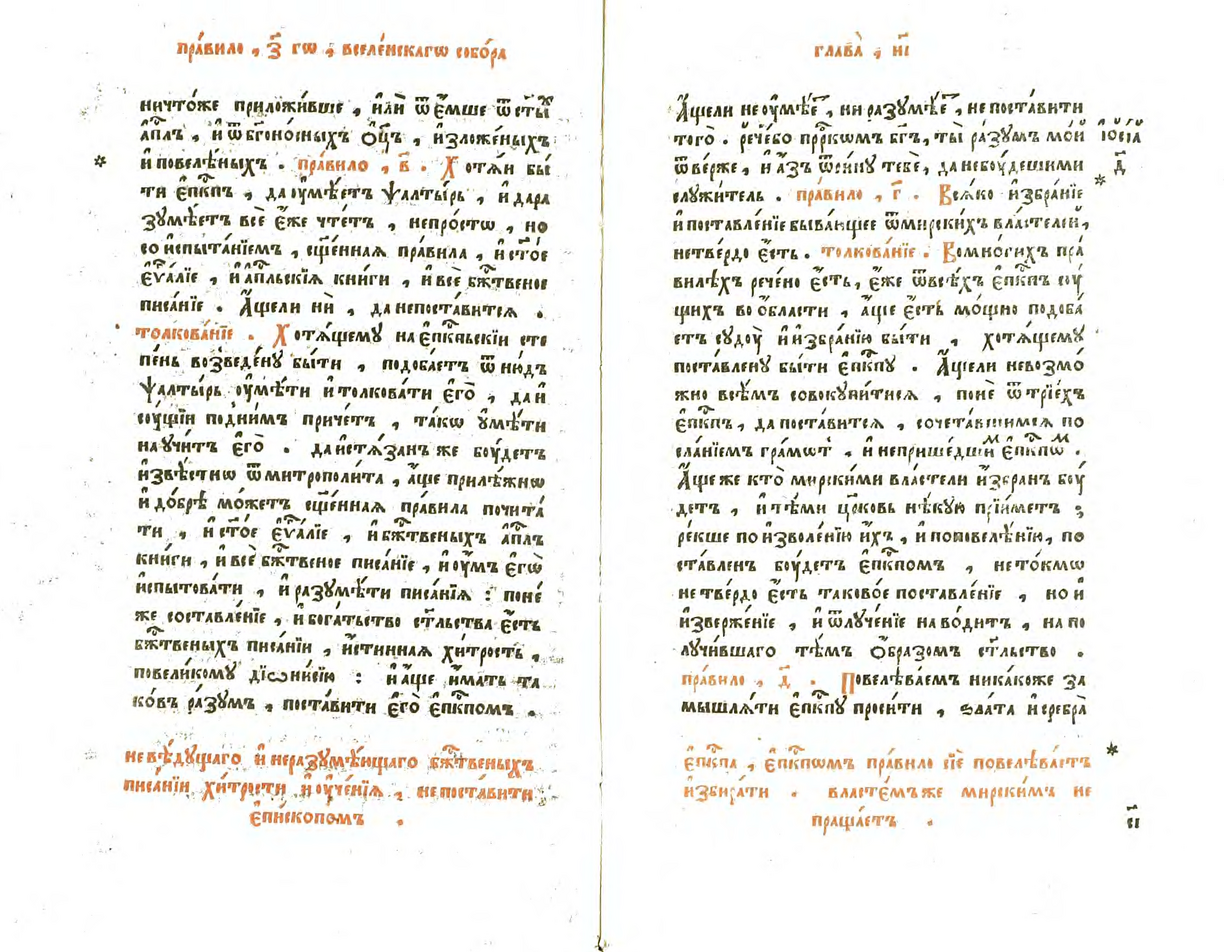 пра́вило , з҃ гѡ , вселе́нскагѡ собо́ра
ничто́же приложи́вше , и҆лѝ ѿе́мше ѿ ст҃ы́х
а҆пл҃ъ , и҆ ѿ бг҃оно́сныхъ ѻ҆ц҃ъ , и҆зложе́ныхъ
* и҆ повелѣ́ныхъ . пра́вило , в҃ . Хотѧ́й бы́
ти є҆пкⷭ҇пъ , да оу҆мѣ́етъ ѱалты́рь , и҆ да ра
зумѣ́етъ всѐ є҆́же чте́тъ , непро́стѡ , но
со и҆спыта́нїемъ , сщ҃е́нная пра́вила , и҆ ст҃о́е
є҆ѵⷢ҇а́лїе , и҆ а҆пⷭ҇льскїя кни́ги , и҆ всѐ бж҃ⷭтвеное
писа́нїе . А҆́щели нѝ , да непоста́вится .
толкова́нїе . Хотѧ́щему на є҆пкⷭ҇пьскїи сте
пе́нь возведе́ну бы́ти , подоба́етъ ѿню́дъ
ѱалты́рь оу҆мѣ́ти и҆ толкова́ти є҆го̀ , да и҆
соу́щїи под ни́мъ при́четъ , та́кѡ умѣ́ти
научи́тъ є҆го̀ . да и҆стѧ́занъ же боу́детъ
и҆звѣ́стнѡ ѿ митрополи́та , а҆́ще прилѣ́жнѡ
и҆ до́брѣ мо́жетъ сщ҃е́нная пра́вила почита́
ти , и҆ ст҃о́е є҆ѵⷢ҇а́лїе , и҆ бж҃ⷭтвеныхъ а҆пⷭ҇лъ
кни́ги , и҆ всѐ бж҃ⷭтвеное писа́нїе , и҆ оу҆́мъ є҆гѡ̀
и҆спытова́ти , и҆ разумѣ́ти писа́нїя : поне́
же составле́нїе , и҆ бога́тьство ст҃льства є҆́сть
бж҃ⷭтвеныхъ писа́нїи , и҆́стинная хи́трость ,
повели́кому дїѡни́сїю : и҆ а҆́ще и҆́мать та
ко́въ ра́зумъ , поста́вити є҆го̀ є҆пкⷭ҇помъ .
невѣ́дущаго и҆ неразумѣ́ющаго бж҃ⷭтвеныхъ
писа́нїи хи́трости и҆ оу҆че́нїя , непоста́вити
є҆пи́скопомъ .
глава̀ , и҃і
А҆́щели не оу҆мѣ́еⷮ , ни разумѣ́еⷮ , не поста́вити
того̀ . рече́бо прⷪ҇ркомъ бг҃ъ , ты̀ ра́зумъ мо́й
ѿве́рже , и҆ а҆́зъ ѿри́ну тебѐ , да небоу́деши ми
служи́тель . пра́вило , г҃ . Всѧ́ко и҆збра́нїе
и҆ поставле́нїе быва́ющее ѿ мирски́хъ власте́лей ,
нетве́рдо є҆́сть . толкова́нїе . Во мно́гихъ пра́
вилѣхъ рече́но є҆́сть , є҆́же ѿ всѣ́хъ є҆пкⷭ҇пъ соу́
щихъ во ѻ҆́бласти , а҆́ще є҆́сть мо́щно подоба́
етъ судоу̀ и҆ и҆збра́нїю бы́ти , хотѧ́щему
поста́влену бы́ти є҆пкⷭ҇пу . А҆́щели невозмо́
жно всѣ́мъ совокупи́тися , понѐ ѿ трїе́хъ
є҆пкⷭ҇пъ , да поста́вится , сочета́вшимся по
сла́нїемъ гра́мѡт , и҆ неприше́дшиⷨ є҆пкⷭ҇пѡⷨ .
А҆́ще же кто̀ мирски́ми вла́стели и҆́збранъ боу́
детъ , и҆ тѣ́ми цр҃ковь нѣ́кую прїи́метъ ;
ре́кше по и҆зволе́нїю и҆́хъ , и҆ по повелѣ́нїю , по
ста́вленъ боу́детъ є҆пкⷭ҇помъ , нето́кмѡ
нетве́рдо є҆́сть таково́е поставле́нїе , но и҆
и҆зверже́нїе , и҆ ѿлуче́нїе наво́дитъ , на по
лучи́вшаго тѣ́мъ ѻ҆́бразомъ ст҃льство .
пра́вило , д҃ . Повелѣва́емъ ника́коже за
мышлѧ́ти є҆пкⷭ҇пу проси́ти , ѕла́та и҆ сребра̀
і҆ѡсі́а
д҃
*
є҆пкⷭ҇па , є҆пкⷭ҇пѡмъ пра́вило сїѐ повелѣва́етъ *
и҆збира́ти . власте́мъже мирски́мъ не
праща́етъ .
є҃і